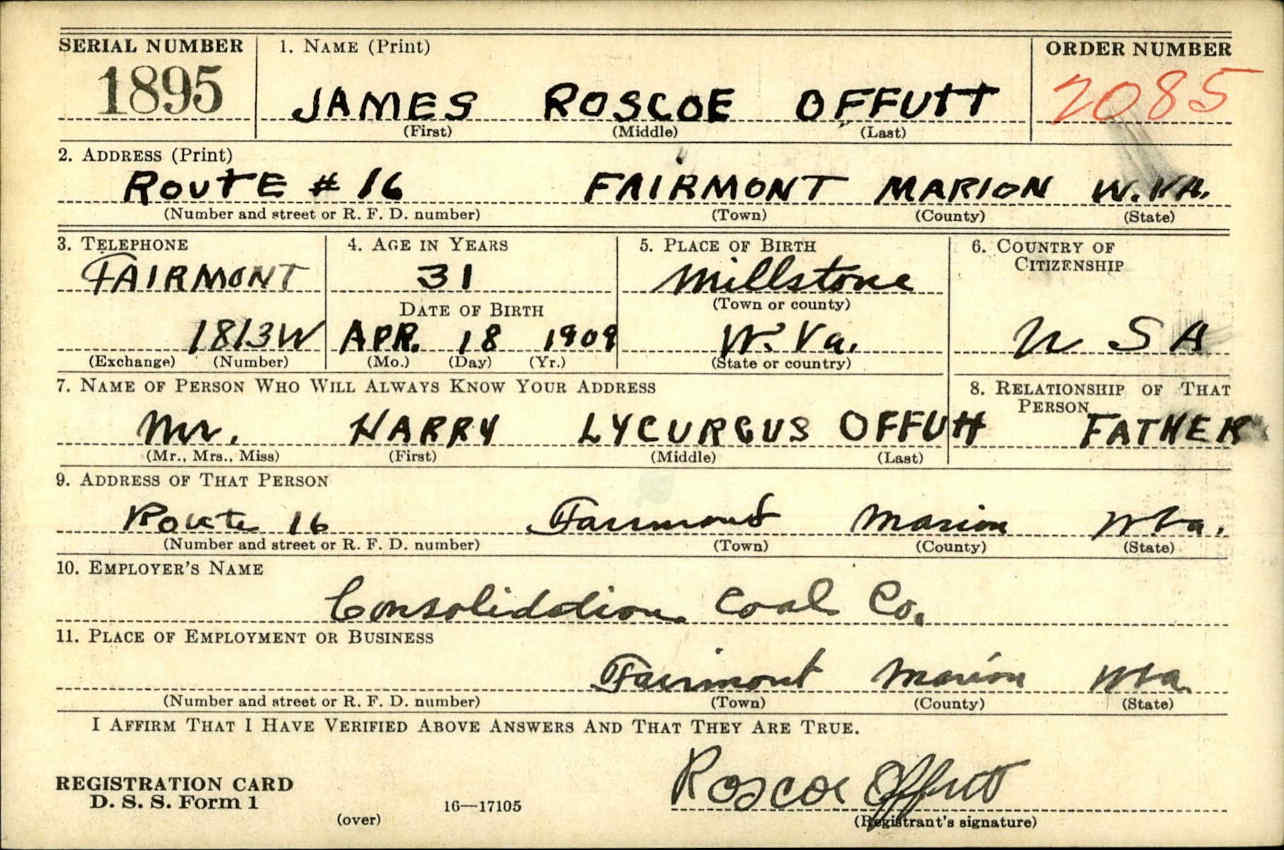 SERIAL NUMBER 1. NAME (Print) ORDER NUMBER
1895 JAMES ROSCOE OFFUTT 2085
(First) (Middle) (Last)
2. ADDRESS (Print)
ROUTE # 16 FAIRMONT MARION W.VA.
(Number and street or R. F. D. number) (Town) (County) (State)
3. TELEPHONE 4. AGE IN YEARS 5. PLACE OF BIRTH 6. COUNTRY OF
CITIZENSHIP
FAIRMONT 31 Millstone
DATE OF BIRTH (Town or county)
1813W APR. 18 1909 W. Va. U S A
(Exchange) (Number) (Mo.) (Day) (Yr.) (State or country)
7. NAME OF PERSON WHO WILL ALWAYS KNOW YOUR ADDRESS 8. RELATIONSHIP OF THAT
PERSON
Mr. HARRY LYCURGUS OFFUTT FATHER
(Mr., Mrs., Miss) (First) (Middle) (Last)
9. ADDRESS OF THAT PERSON
Route 16 Fairmont Marion W Va.
(Number and street or R. F. D. number) (Town) (County) (State)
10. EMPLOYER'S NAME
Consolidation Coal Co.
11. PLACE OF EMPLOYMENT OR BUSINESS
Fairmont Marion W Va
(Number and street or R. F. D. number) (Town) (County) (State)
I AFFIRM THAT I HAVE VERIFIED ABOVE ANSWERS AND THAT THEY ARE TRUE.
Roscoe Offutt
REGISTRATION CARD
D. S. S. Form 1 16—17105
(over) (Registrant's signature)